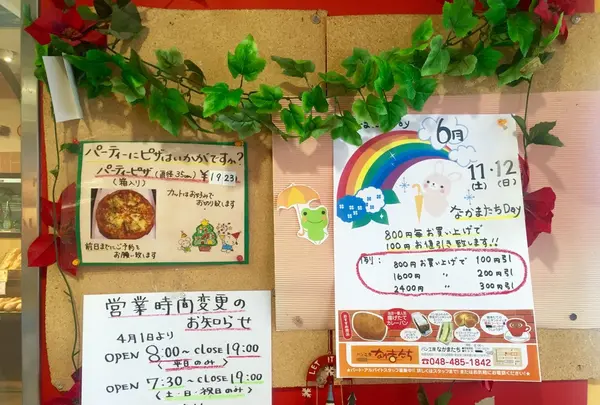 パーティーにピザはいかがですか?
パーティーピザ(直径35cm)¥1923
(箱入り)
カットはお好みで
お切り致します
前日までにご予約を
お願い致します
営業時間変更の
お知らせ
4月1日より
OPEN 8:00~CLOSE19:00
(平日のみ)
OPEN 7:30~CLOSE19:00
(土・日・祝日のみ)
6月
11・12
(土) (日)
なかまたちDay
800円毎お買い上げで
100円お値引き致します!!
例:800円お買上げで 100円引
1600円 〃 200円引
2400円 〃 300円引
揚げたて
カレーパン
パン工房 なかまたち
パン工房
なかまたち
☎048-485-1842
LET IT